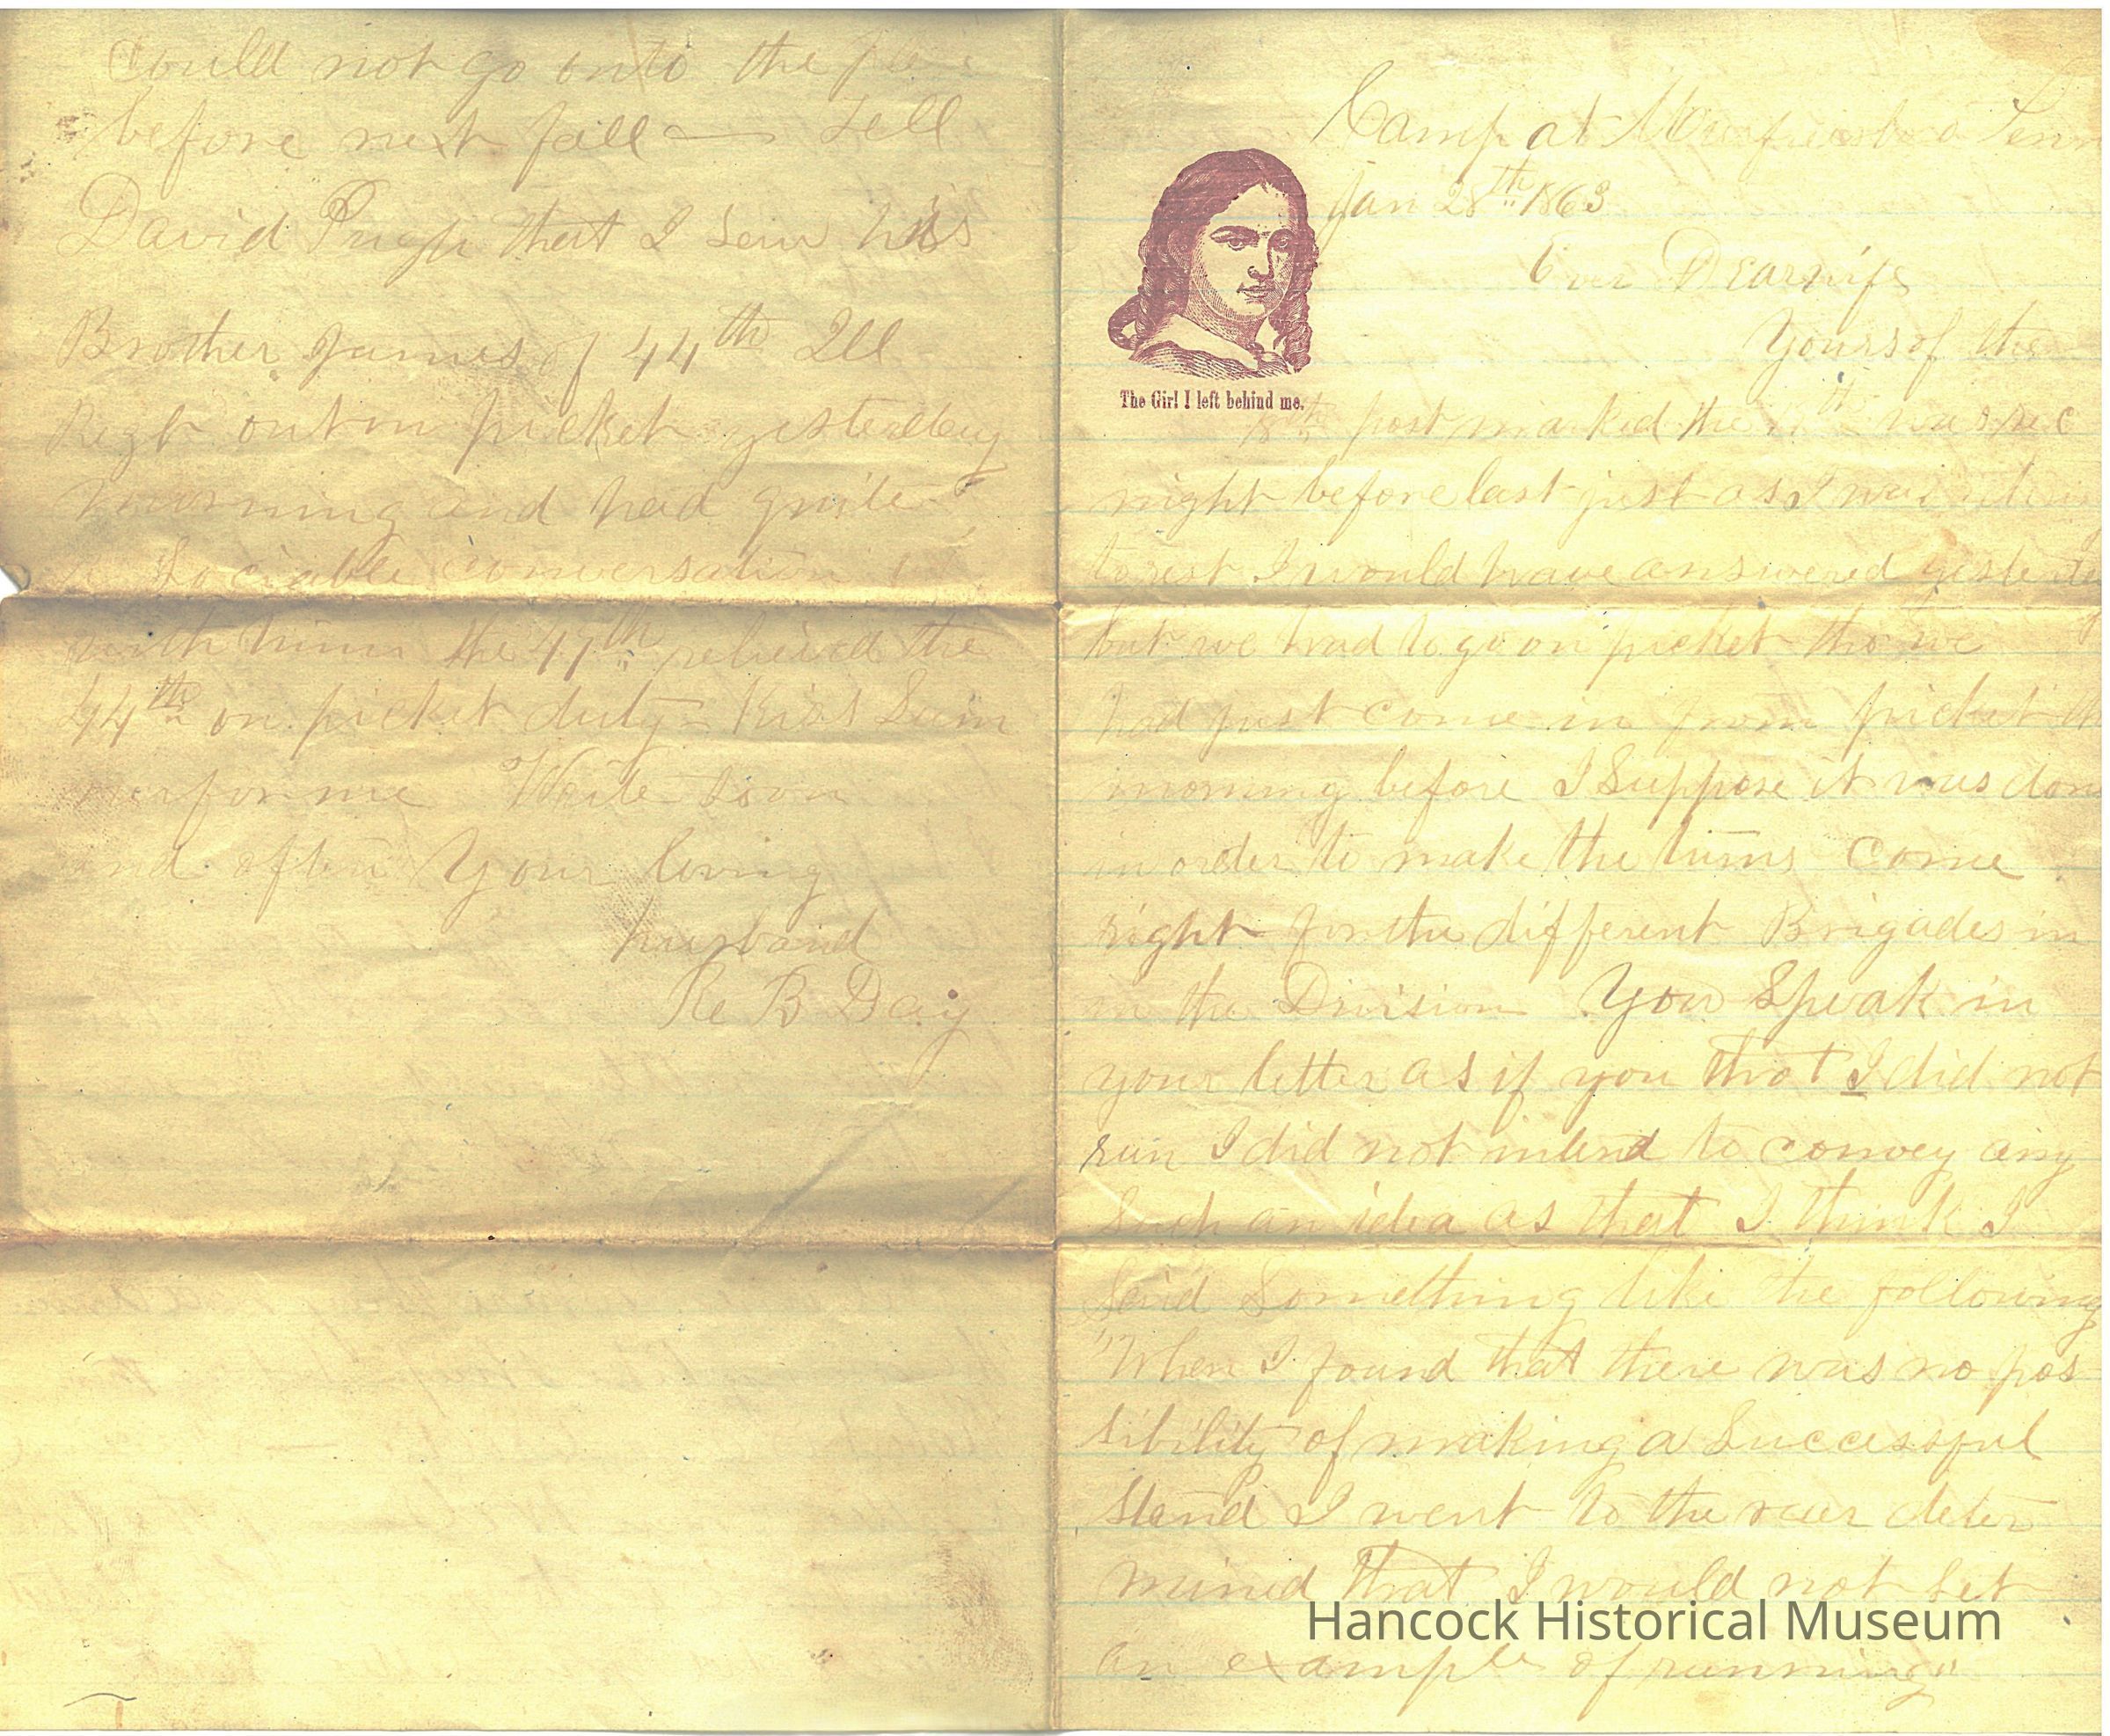 Camp at Murfreesboro Tenn
Jan 28th 1863
Dear wife
Yours of the
The Girl I left behind me.
18th post marked the was rec
night before last just as I was
to rest I would have answered yesterday
but we had to go on picket tho we
had just come in from picket the
morning before I Suppose it was done
in order to make the turns come
right for the different Brigades in
in the Division You Speak in
your letter as if you thot I did not
run I did not intend to convey any
Such an idea as that I think I
Said Something like the following
"When I found that there was no pos
sibility of making a Successful
Stand I went to the rear deter
mined that I would not Set
an example of running"
Could not go onto the
before next fall — Tell
David Pugh that I Saw his
Brother James of 44th Ill
Regt out on picket yesterday
morning and had quite
a Sociable conversation
with him the 47th relieved the
44th on picket duty Kiss
for me Write Soon
and often Your loving
husband
B Day
Hancock Historical Museum